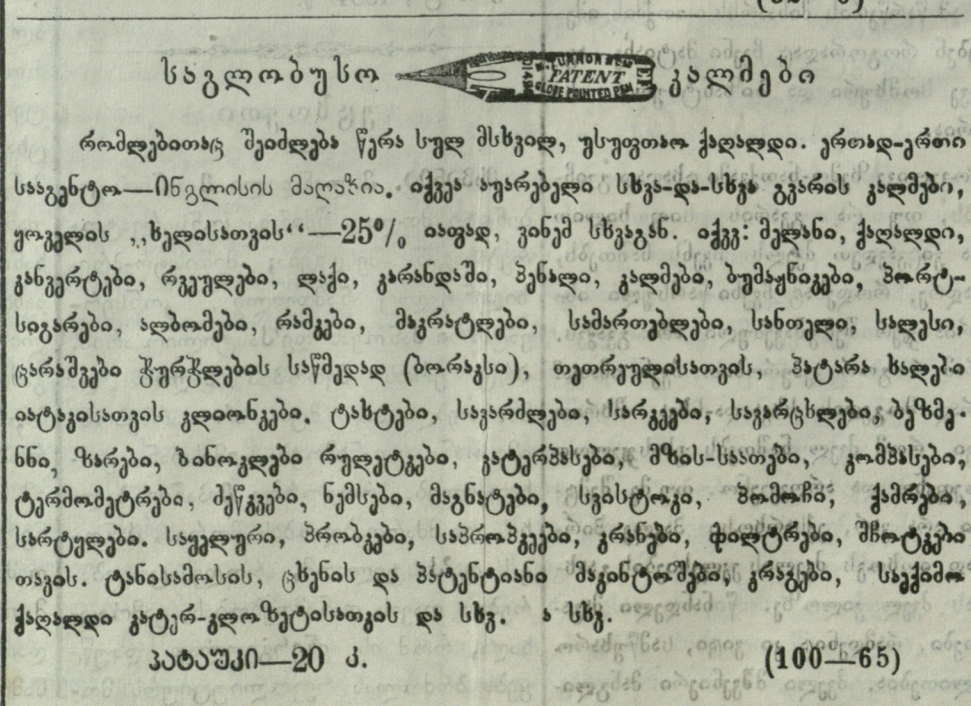 საგლობუსო TURNOR & Co PATENT GLOBE POINTED PEN კალმები
რომლებითაც შეიძლება წერა სულ მსხვილ, უსუფთაო ქაღალდი. ერთად-ერთი
სააგენტო—ინგლისის მაღაზია. იქვეა აუარებელი სხვა-და-სხვა გვარის კალმები,
ყოველის „ხელისათვის“—25% იაფად, ვინემ სხვაგან. იქვვ: მელანი, ქაღალდი,
კანვერტები, რვეულები, ლაქი, კარანდაში, პენალი, კალმები, ბუმაჟნიკები, პორტ-
სიგარები, ალბომები, რამკები, მაკრატლები, სამართებლები, სანთელი, სალესი,
ცარაშვები ჭურჭლების საწმედად (ბორაკსი), თეთრეულისათვის, პატარა ხალები
იატაკისათვის კლიონკები. ტახტები, სავარძლები, სარკეები, სავარცხლები, ბეზმე-
ნნი, ზარები, ბინოკლები რულეტკები, ვატერპასები, მზის-საათები, კომპასები,
ტერმომეტრები, ძეწკვები, ნემსები, მაგნატები, სვისტოკი, პომოჩი, ქამრები,
სარტყლები. საყელური, პრობკები, საპროპკეები, კრანები, ფილტრები, შჩოტკები
თავის. ტანისამოსის, ცხენის და პატენტიანი მაკინტოშები, კრაგები, საექიმო
ქაღალდი ვატერ-კლოზეტისათვის და სხვ. ა სხვ.
პატაუკი—20 კ. (100—65)